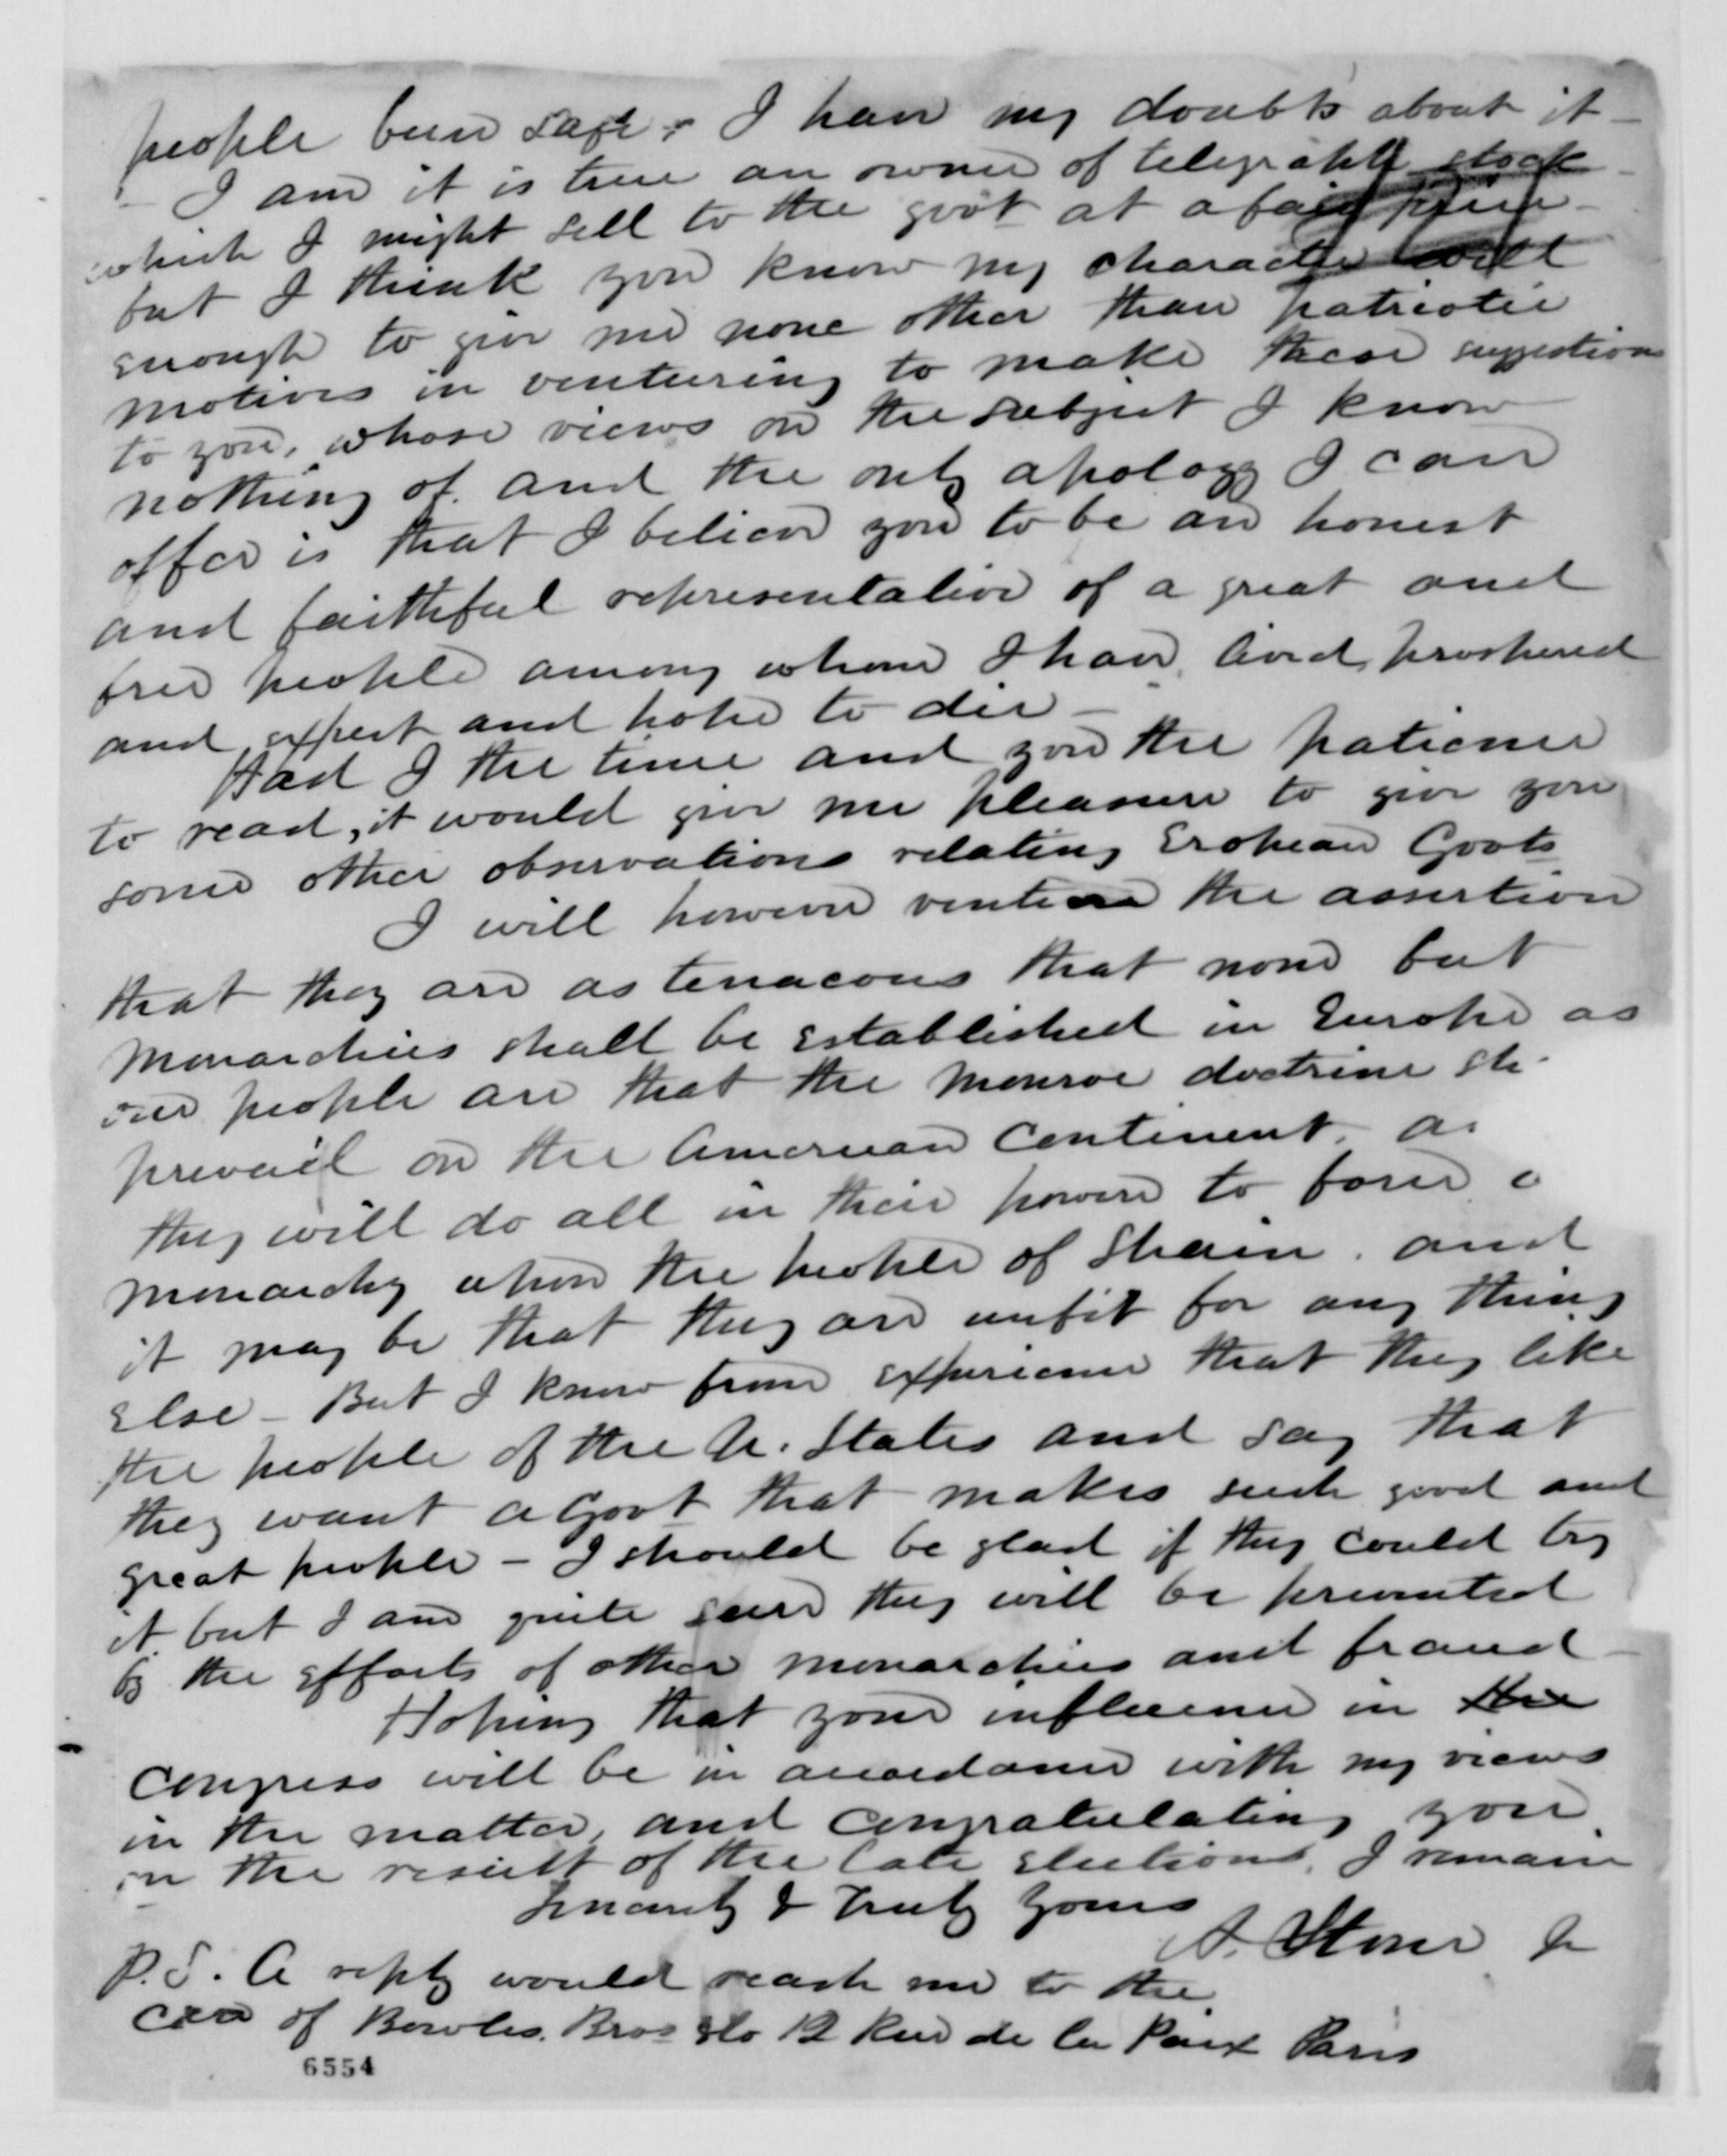 people been safe. I have my doubts about it —
— I am it is true an owner of telegraph stock —
which I might sell to the govt at a fair price —
but I think you know my character well
enough to give me none other than patriotic
motives in venturing to make these suggestions
to you, whose views on the subject I know
nothing of. and the only apology I can
offer is that I believe you to be an honest
and faithful representative of a great and
free people among whom I have lived, prospered
and expect and hope to die —
Had I the time and you the patience
to read, it would give me pleasure to give you
some other observations relating Eropean Govts
I will however venture the assertion
that they are as tenacous that none but
Monarchies shall be established in Europe as
our people are that the Monroe doctrine sh
prevail on the American Continent. a
they will do all in their power to force a
monarchy upon the people of Spain. and
it may be that they are unfit for any thing
else — But I know from experience that they like
the people of the U. States and say that
they want a Govt that makes such good and
great people — I should be glad if they could try
it but I am quite sure they will be prevented
by the efforts of other monarchies and fraud —
Hoping that your influence in the
Congress will be in accordance with my views
in the matter, and congratulating you
on the result of the late elections, I remain
Sincerely & Truly Yours
A. Stone Jr
P.S. A reply would reach me to the
care of Bowles Bros & Co 12 Rue de la Paix Paris
6554